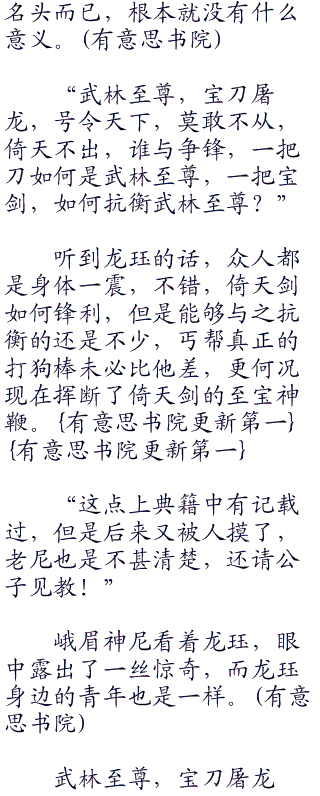 名头而已，根本就没有什么
意义。(有意思书院)
“武林至尊，宝刀屠
龙，号令天下，莫敢不从，
倚天不出，谁与争锋，一把
刀如何是武林至尊，一把宝
剑，如何抗衡武林至尊？”
听到龙珏的话，众人都
是身体一震，不错，倚天剑
如何锋利，但是能够与之抗
衡的还是不少，丐帮真正的
打狗棒未必比他差，更何况
现在挥断了倚天剑的至宝神
鞭。{有意思书院更新第一}
{有意思书院更新第一}
“这点上典籍中有记载
过，但是后来又被人摸了，
老尼也是不甚清楚，还请公
子见教！”
峨眉神尼看着龙珏，眼
中露出了一丝惊奇，而龙珏
身边的青年也是一样。(有意
思书院)
武林至尊，宝刀屠龙